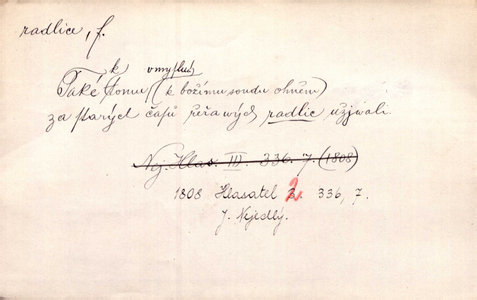 radlice, f.
k úmyslu
Také k tomu (k božímu soudu ohněm)
za starých časů řeřawých radlic užjwali.
Nej. Hlas. III. 336. 7. (1808)
1808 Hlasatel 2. 336, 7.
J. Nejedlý.